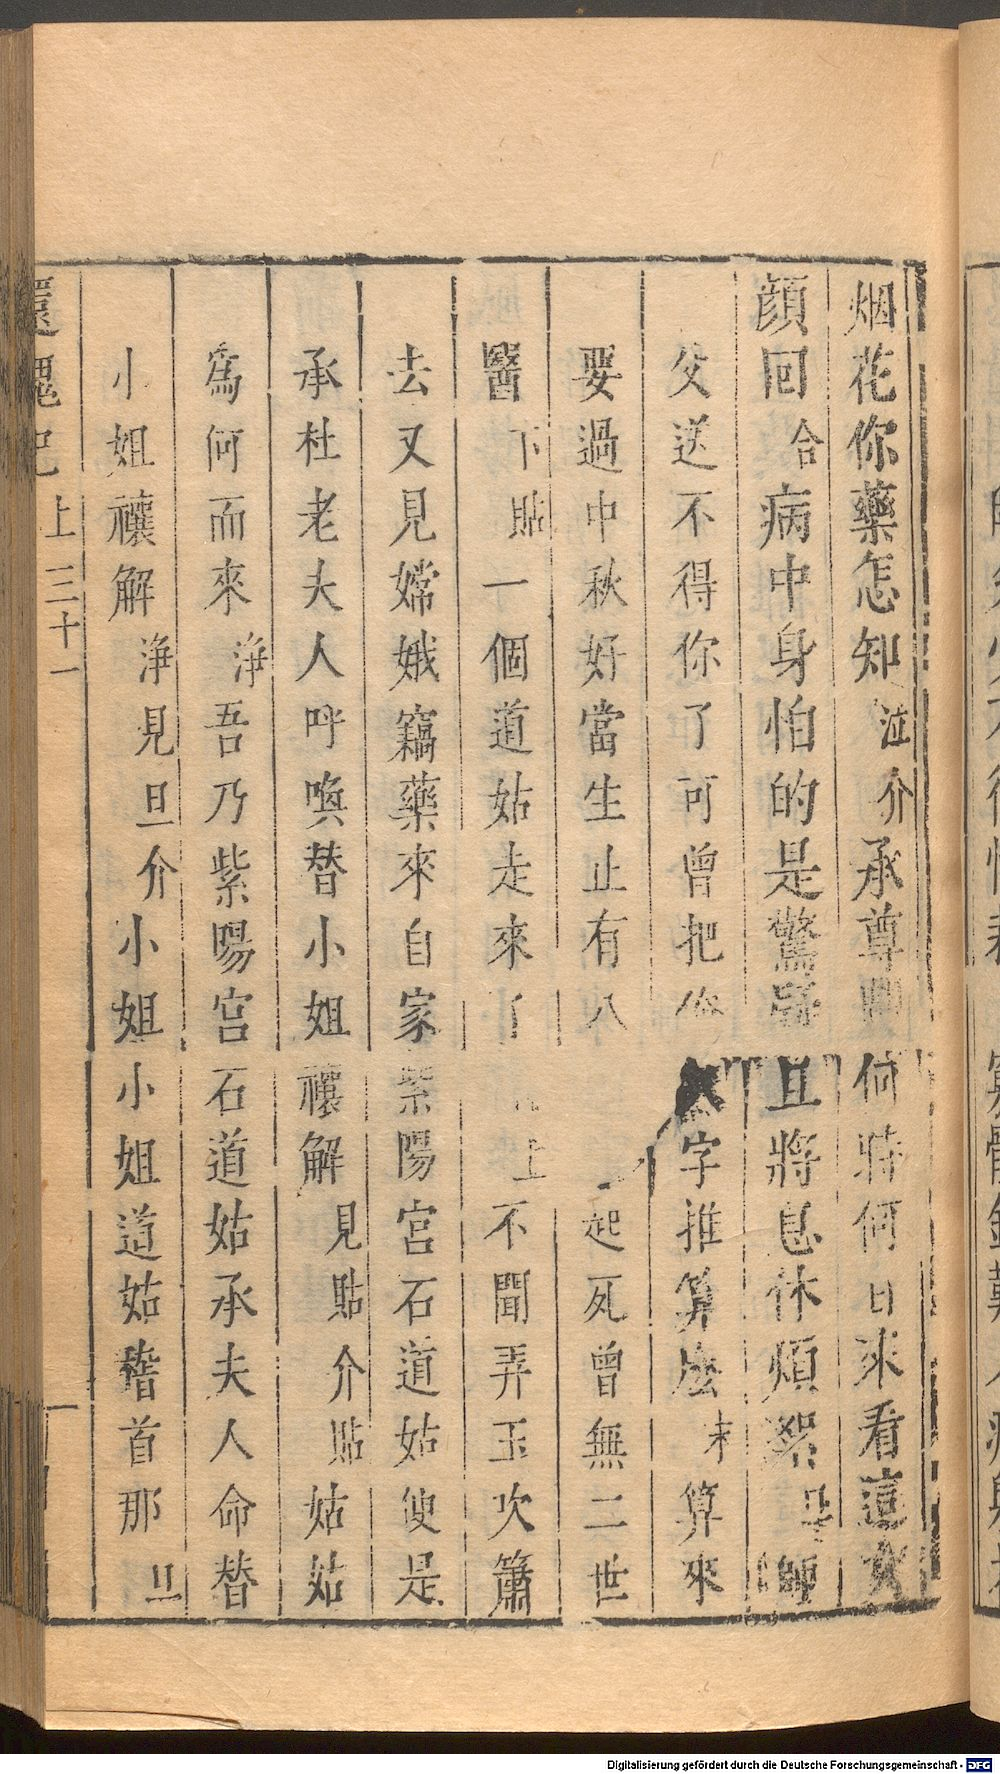 烟花你藥怎知泣介承尊何時何日來看這女
顔回合病中身怕的是驚且將息休煩絮旦師
父送不得你了可曾把俺八字推算麽末算來
要過中秋好當生止有八起死曾無二世
醫下貼一個道姑走來了上不聞弄玉吹簫
去又見嫦娥竊藥來自家紫陽宮石道姑便是
承杜老夫人呼喚替小姐禳解見貼介貼姑姑
爲何而來淨吾乃紫陽宮石道姑承夫人命替
小姐禳解淨見旦介小姐小姐道姑稽首那旦
還魂記 上 三十一
Digitalisierung gefördert durch die Deutsche Forschungsgemeinschaft - DFG